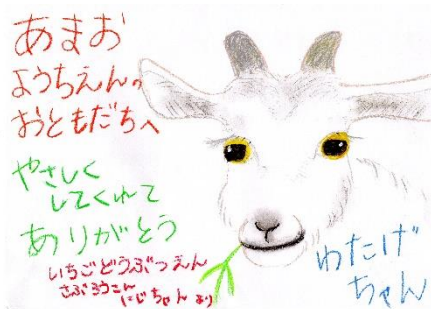 あまお
ようちえんの
おともだちへ
やさしく
してくれて
ありがとう
いちごどうぶつえん
さぶろうこん
にじちゃんより
わたげ
ちゃん